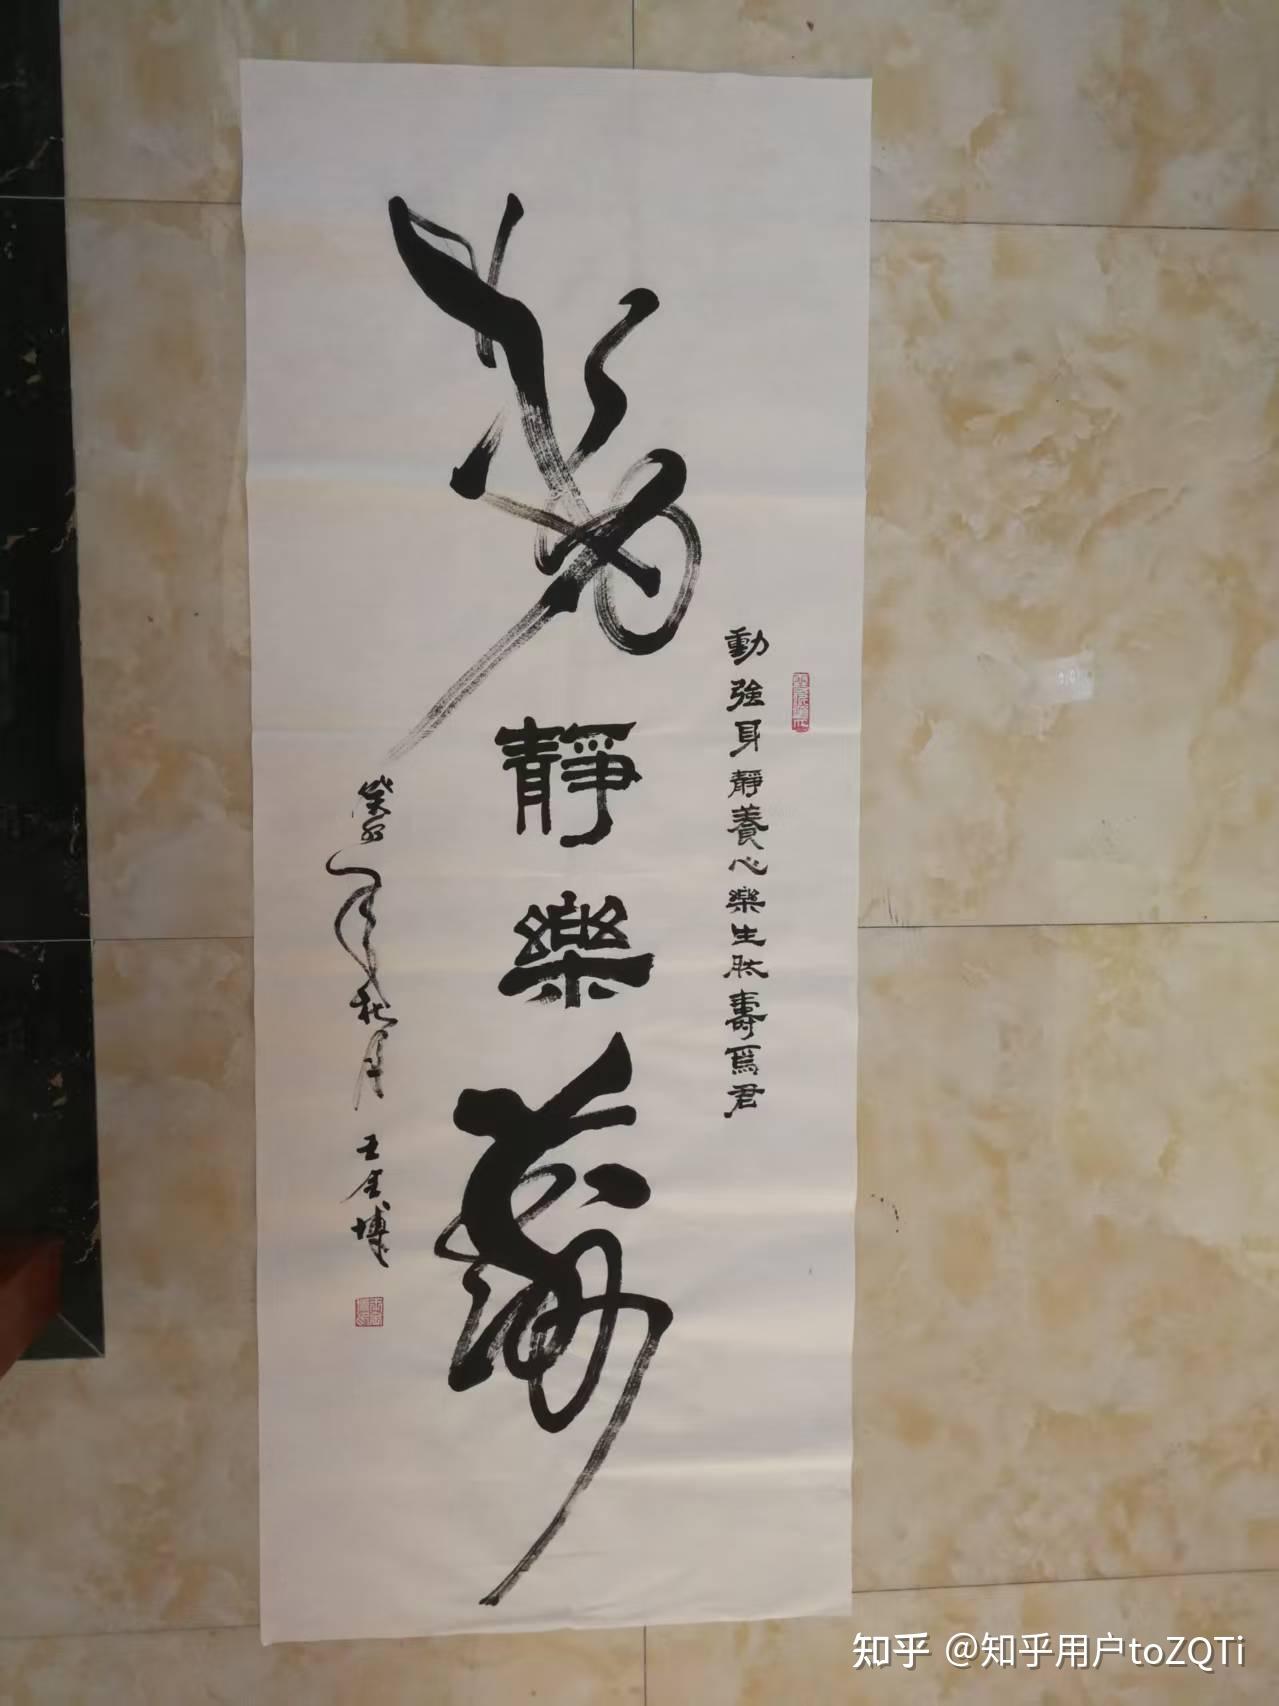 動強身靜養心樂生肽壽爲君
動靜樂壽
癸卯年秋月 王金博
知乎 @知乎用户toZQTi